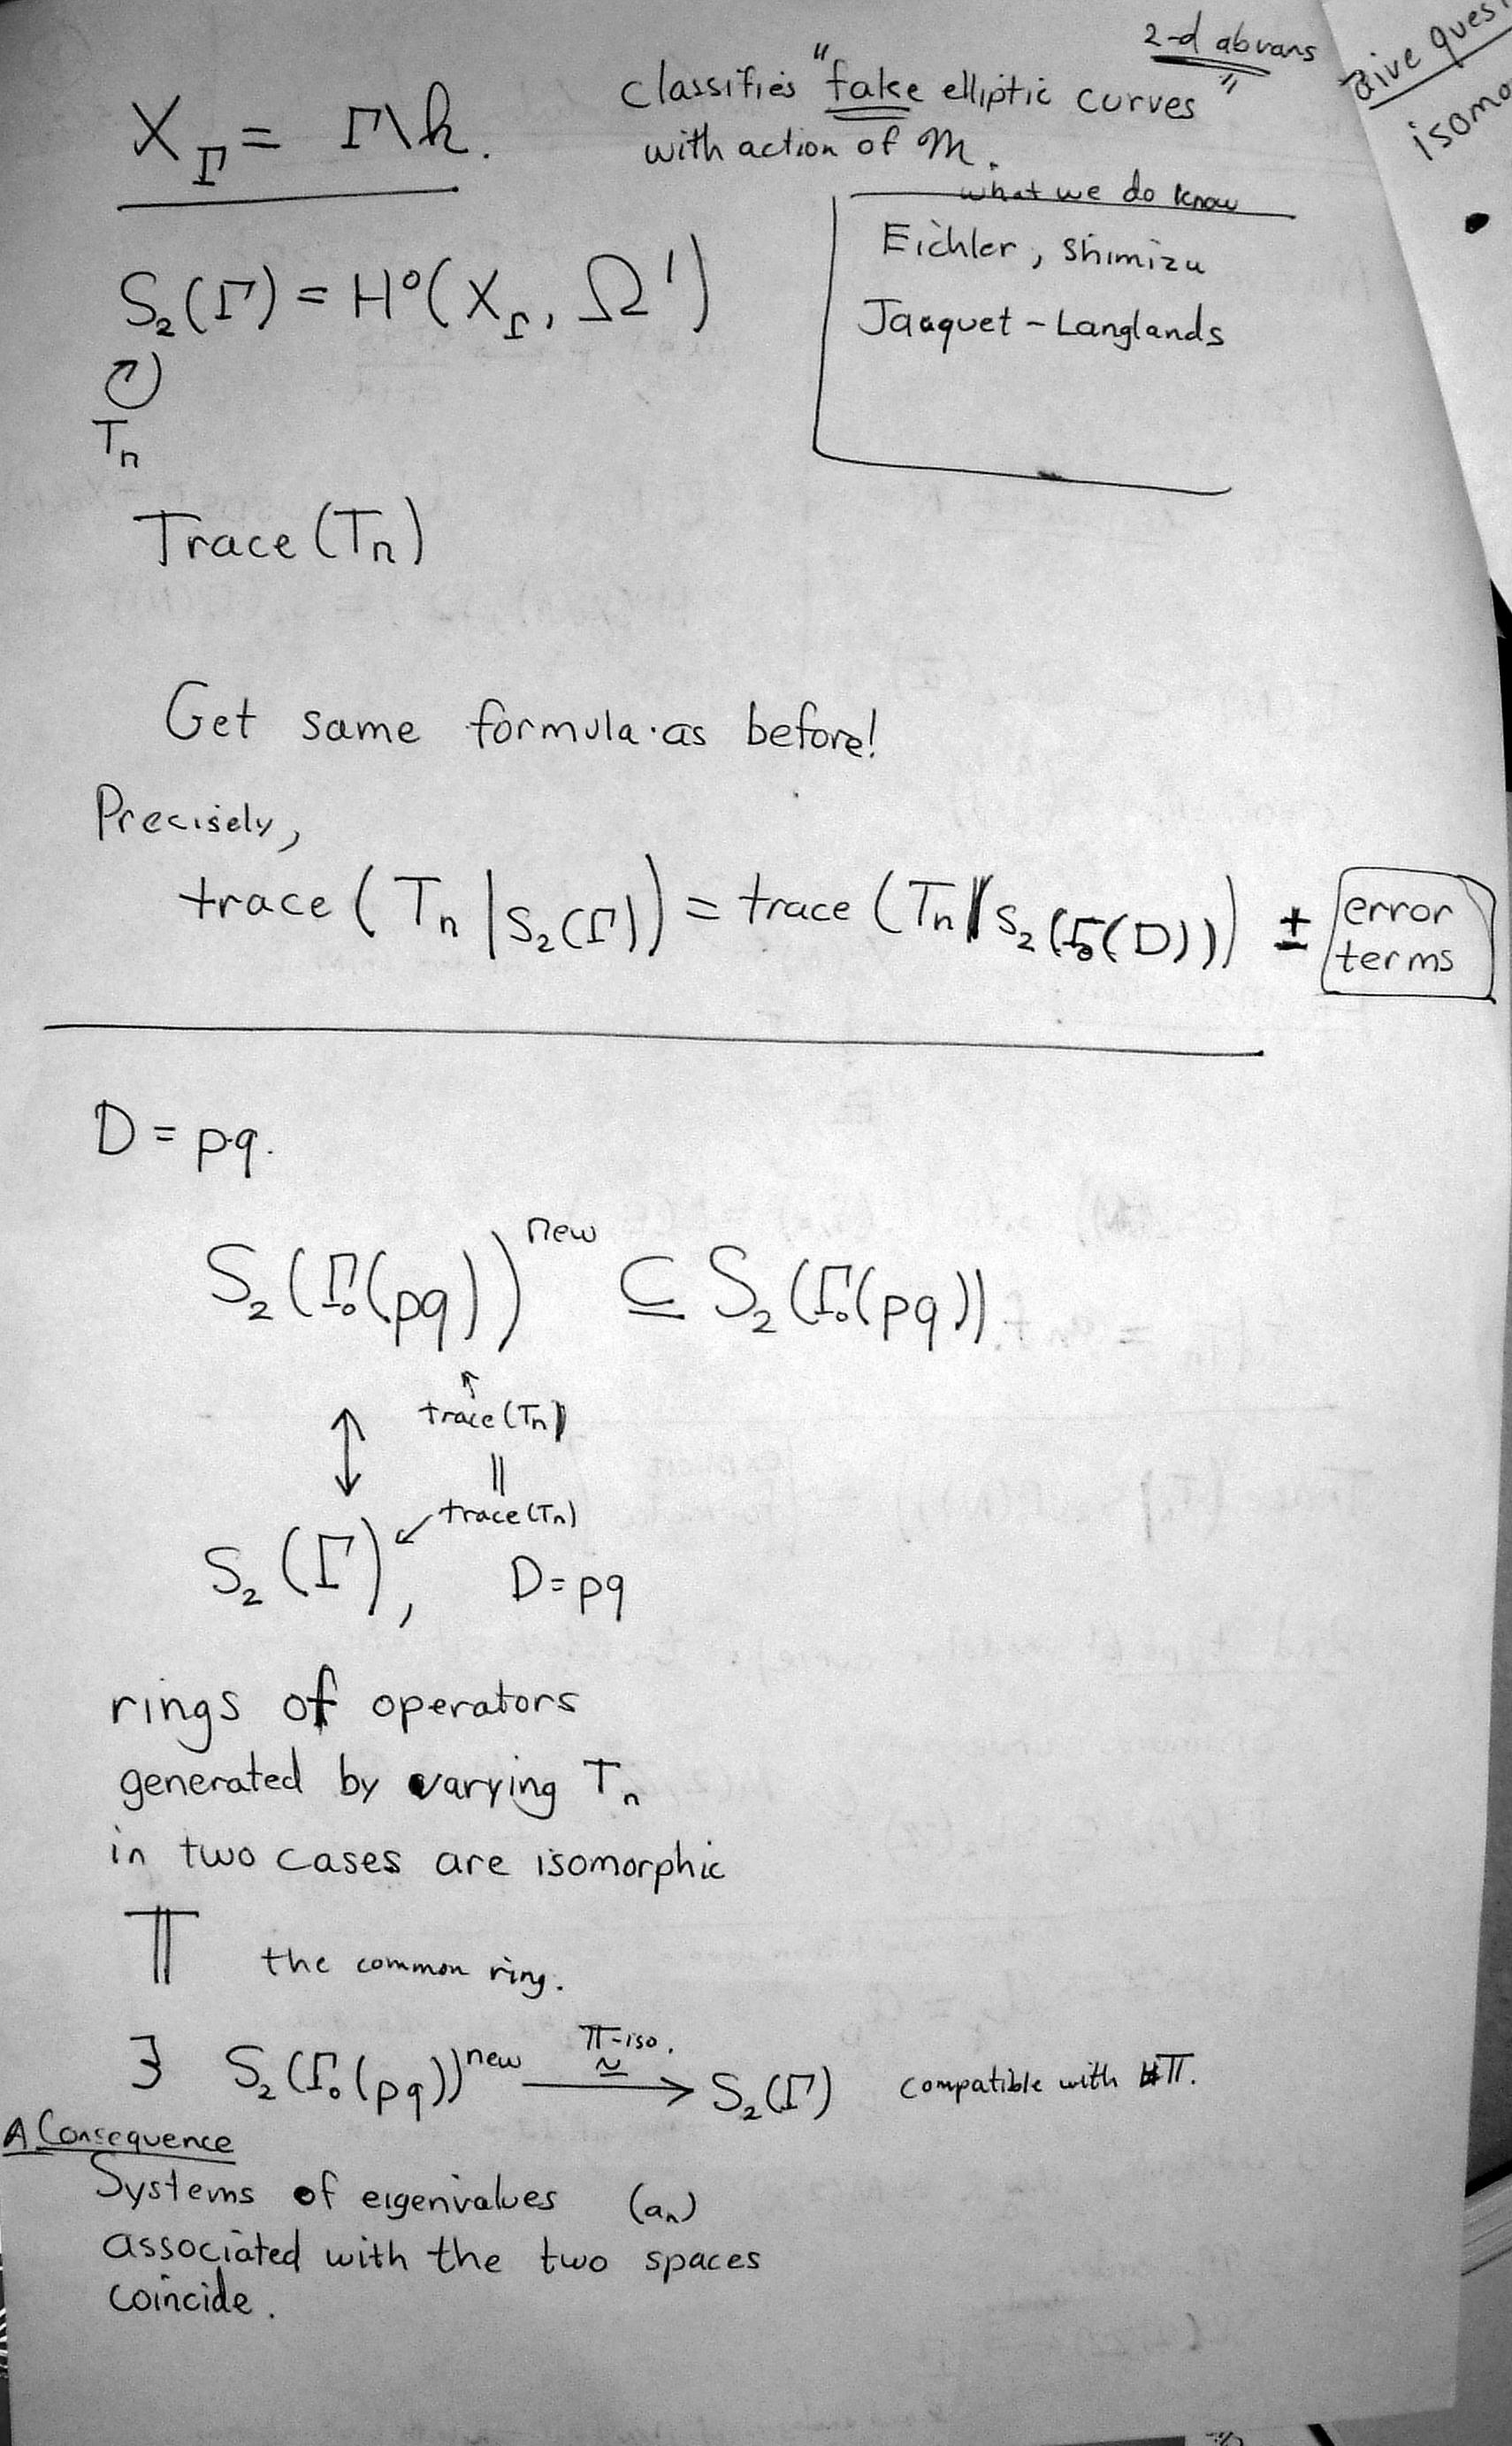 2-d abvars
X_Γ = Γ\h. classifies "fake elliptic curves"
with action of M.
what we do know
Eichler, Shimizu
Jacquet-Langlands
S₂(Γ) = H⁰(X_Γ, Ω¹)
↻
Tn
Trace (Tn)
Get same formula as before!
Precisely,
trace (Tn | S₂(Γ)) = trace (Tn | S₂(Γ₀(D))) ± error
terms
D = pq.
S₂(Γ₀(pq))^new ⊆ S₂(Γ₀(pq))
↑
↕ trace (Tn)
||
trace (Tn)
S₂(Γ), D=pq
rings of operators
generated by varying Tn
in two cases are isomorphic
𝕋 the common ring.
∃ S₂(Γ₀(pq))^new ≃→ S₂(Γ) compatible with 𝕋.
𝕋-iso.
A Consequence
Systems of eigenvalues (an)
associated with the two spaces
coincide.
isomo